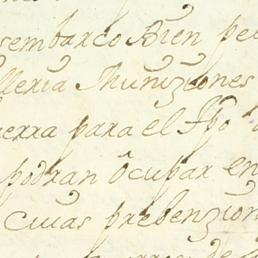 sembarco Bien pe
lleria Muniziones
erra para el Tpo
podran ôcupar en
Cuias prebenzion